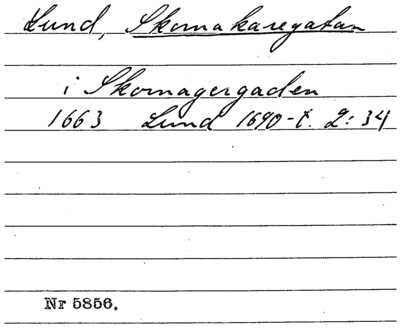 Lund, Skomakaregatan
i Skomagergaden
1663 Lund 1690-t. 2:34
Nr 5856.